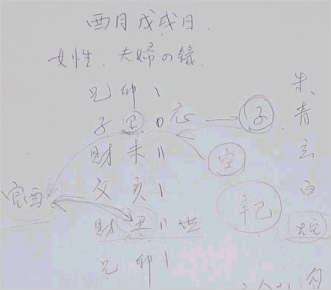 酉月戊戌日
女性 夫婦の縁
兄 卯 朱
子 巳 応 子 青
財 未 空 玄
官酉 父 亥 白
財 丑 世
兄 卯